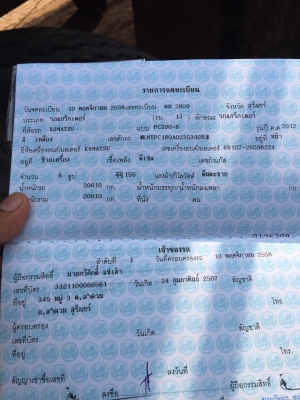 รายการจดทะเบียน
วันจดทะเบียน 10 พฤศจิกายน 2558 เลขทะเบียน ตค 2809 จังหวัด สุรินทร์
ประเภท รถแทร็กเตอร์ (รย. 13) ลักษณะ รถแทร็กเตอร์
ยี่ห้อรถ KOMATSU แบบ PC200-8 รุ่นปี ค.ศ. 2012
สี เหลือง เลขตัวรถ อยู่ที่
ยี่ห้อเครื่องยนต์/มอเตอร์ KOMATSU เลขเครื่องยนต์/มอเตอร์ 6D107-26598224
อยู่ที่ เชื้อเพลิง ดีเซล เลขถังแก๊ส
จำนวน 6 สูบ ซีซี 155 แรงม้า/กิโลวัตต์
น้ำหนักรถ 20010 กก. น้ำหนักบรรทุก/น้ำหนักลงเพลา กก.
น้ำหนักรวม 20010 กก. ที่นั่ง คน
เจ้าของรถ
ลำดับที่ 1 วันที่ครอบครองรถ 10 พฤศจิกายน 2558
ผู้ถือกรรมสิทธิ์
เลขที่บัตร 3321100066561 วันเกิด 24 กุมภาพันธ์ 2507 สัญชาติ
ที่อยู่ 345 หมู่ 3 ต.ลำดวน โทร.
อ.ลำดวน สุรินทร์
ผู้ครอบครอง
เลขที่บัตร วันเกิด สัญชาติ
ที่อยู่ โทร.
สัญญาเช่าซื้อเลขที่ ลงวันที่
ลงชื่อ ผู้ถือกรรมสิทธิ์